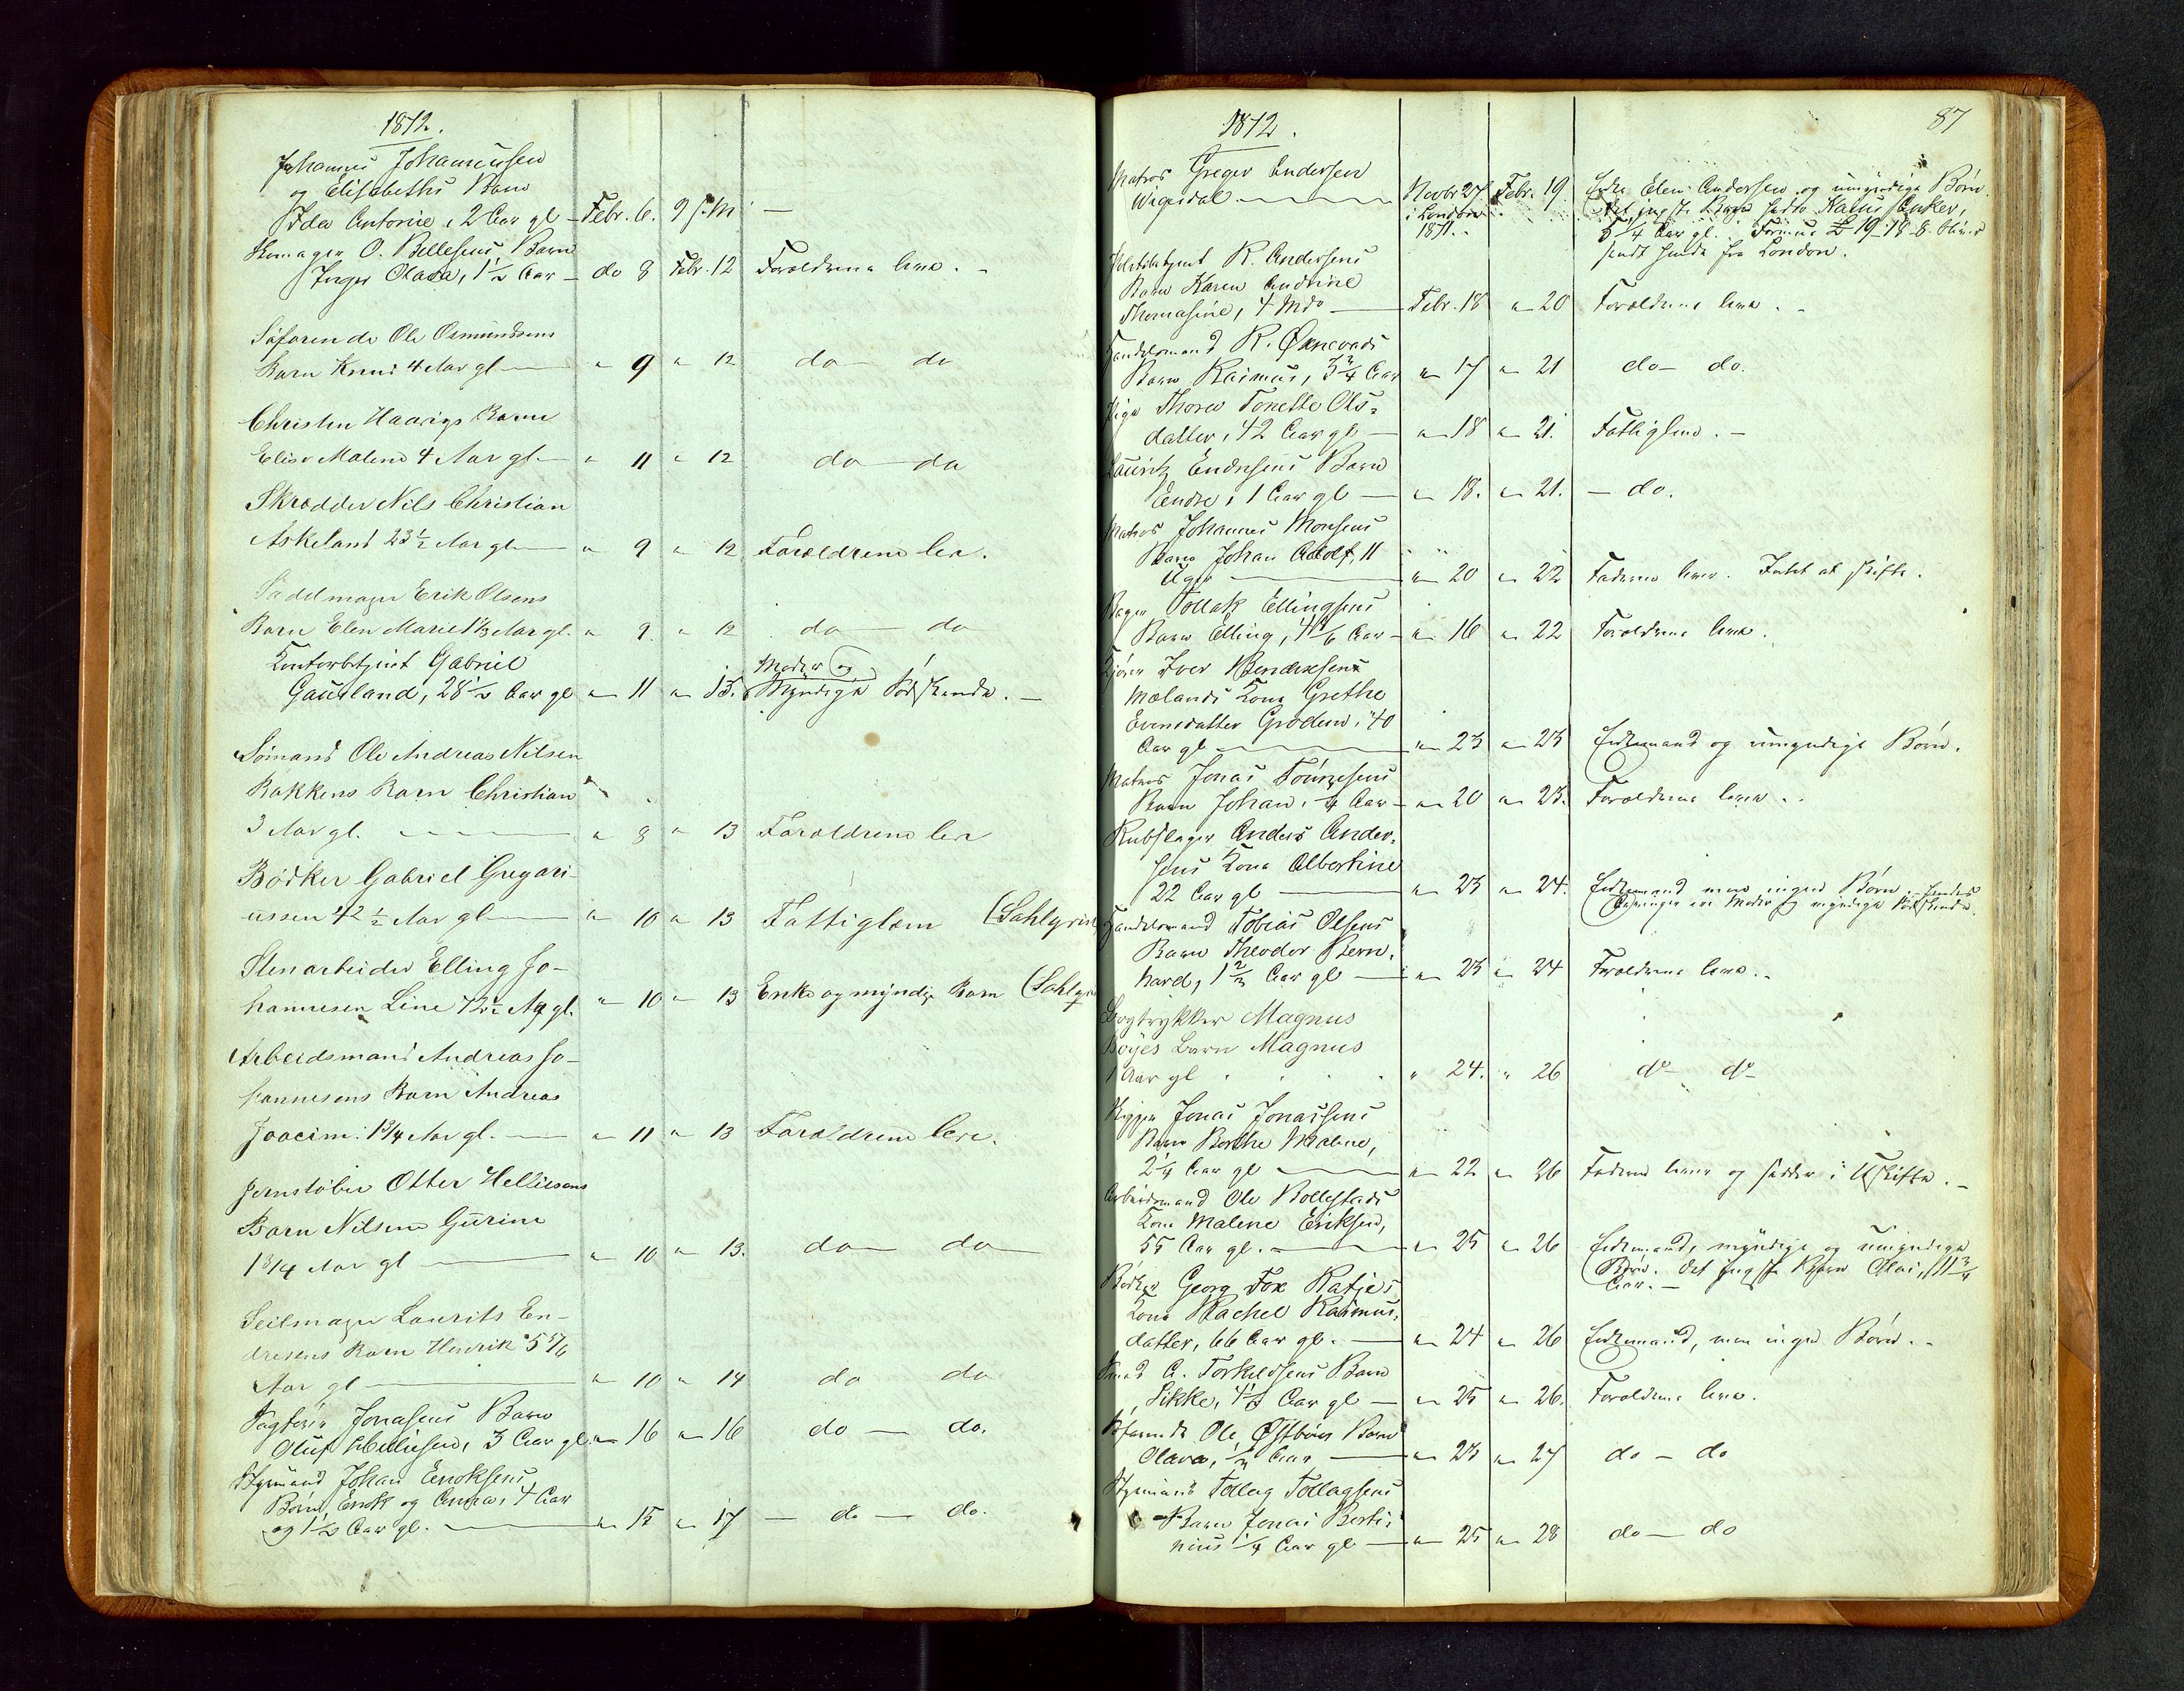 1872.
Johannes Johannessen
og Elisabeths Barn
Ida Antonie, 2 Aar gl - Febr. 6. 9 f. M -
Skomager O. Bellesens Barn
Inger Olava, 1 1/2 Aar - do 8 Febr. 12 Forældrene leve. -
Söfarende Ole Osmundsens
Barn Knud 4 Aar gl - " 9 " 12 do - do
Christen Haavigs Barn
Elise Malene 4 Aar gl - " 11 " 12 do - do
Skrædder Nils Christian
Askeland 23 1/2 Aar gl - " 9 " 12 Forældrene lev.
Sadelmager Erik Olsens
Barn Elen Marie 1 1/3 Aar gl. " 9. " 12 do - do
Kontorbetjent Gabriel
Moder og
Gausland, 28 1/2 Aar gl " 11 " 15. Myndige Södskende. -
Sömand Ole Andreas Nilsen
Bakkens Barn Christian
3 Aar gl. - " 8 " 13 Forældrene lev
Bödker Gabriel Gregari-
ussen 42 1/2 Aar gl - " 10 " 13 Fattiglem (Sahlgrin
Stenarbeider Elling Jo-
hannesen Line 72 1/2 Aar gl. " 10 " 13 Enke og myndige Barn (Sahlgr
Arbeidsmand Andreas Jo-
hannesens Barn Andreas
Joacim. 1 3/4 Aar gl. - " 11 " 13 Forældrene leve.
Jernstöber Otter Helliesens
Barn Nilsine Gurine
1 3/4 Aar gl - " 10 " 13. do - do
Seilmager Laurits En-
dresens Barn Henrik 5 5/6
Aar gl - " 10 " 14 do do
Jonasens Barn
Oluf Helliesen, 3 Aar gl. " 16 " 16 do - do.
Styrmand Johan Enoksens
Börn, Enok og Anna, 4 Aar
og 1 1/2 Aar gl. - " 15 " 17 - do - do.
1872. 87
Matros Greger Andersen
Wigesdal - Novbr 27 Febr. 19. Enke Elen Andersen og umyndige Börn.
i London det yngste Barn
1871. - 5 1/4 Aar gl. Formue £ 19-18-8
sendt hende fra London.
Politibetjent R. Andersens
Barn Karen Andrine
Thomasine, 4 Mdr - Febr. 18 " 20 Forældrene leve. -
Handelsmand R. Öknevads
Barn Rasmus, 3 3/4 Aar " 17 " 21 do - do.
Pige Thore Tonette Ols-
datter, 42 Aar gl - " 18 " 21. Fattiglem. -
Lauritz Endresens Barn
Endre, 1 Aar gl - " 18. " 21. - do.
Matros Johannes Monsens
Barn Johan Adolf, 11
Uger - " 20 " 22 Faderen lever. Intet at skifte.
Bager Tollak Ellingsens
Barn Elling, 4 1/6 Aar - " 16 " 22 Forældrene leve.
Kjörer Iver Bendixsens
Mælands Kone Grethe
Evensdatter Groden, 40
Aar gl - " 23 " 23 Enkemand og umyndige Börn.
Matros Jonas Tönnesens
Barn Johan, 1/4 Aar - " 20 " 23. Forældrene leve. -
Rebslager Anders Ander-
sens Kone Albertine
22 Aar gl - " 23 " 24. Enkemand men ingen Börn. - hendes
Arvinger ere Moder og myndige Södskende.
Handelsmand Tobias Olsens
Barn Theodor Bern-
hard, 1 2/3 Aar gl - " 23 " 24 Forældrene leve. -
Bogtrykker Magnus
Böyes Barn Magnus
1 Aar gl . . . . " 24. " 26 do do
Skipper Jonas Jonassens
Barn Berthe Malene,
2 1/4 Aar gl - " 22 " 26 Faderen lever og sidder i Uskifte. -
Arbeidsmand Ole Bollestads
Kone Malene Eriksen,
55 Aar gl. - " 25 " 26 Enkemand, myndige og umyndige
Börn. det yngste Barn Olai, 11 3/4
Aar. -
Bödker Georg Fox Katjes
Kone Rachel Rasmus-
datter, 66 Aar gl. - " 24 " 26 Enkemand, men ingen Börn. -
Smed A. Torkeldsens Barn
Sikke, 4 1/2 Aar gl - " 25 " 26. Forældrene leve.
Söfarende Ole Östbös Barn
Olava, 1/2 Aar - " 23 " 27 do - do
Styrmand Tollag Tollagsens
Barn Jonas Berti-
nius 1/4 Aar gl - " 25 " 28 do - do